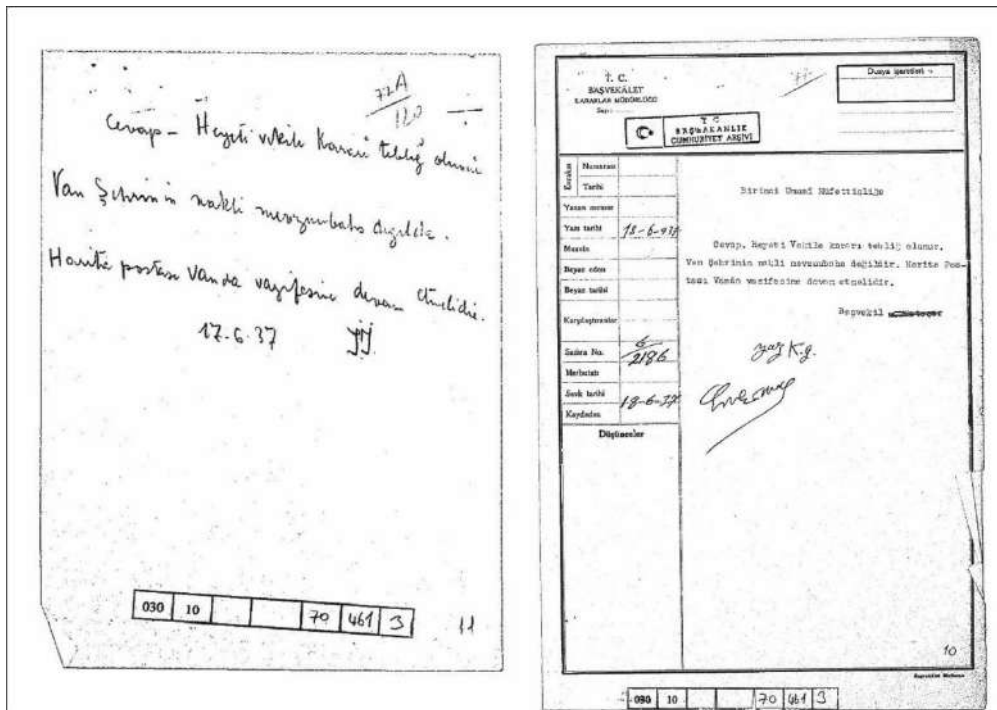 72A
120
Cevap - Heyeti vekile Kararı tebliğ olunur
Van Şehrinin nakli mevzuubahs değildir.
Harita postası Vanda vazifesine devam etmelidir.
17.6.37
030 10 70 461 3
11
T. C.
BAŞVEKÂLET
KARARLAR MÜDÜRLÜĞÜ
Sayı
Dosya işaretleri
T C
BAŞBAKANLIK
CUMHURİYET ARŞİVİ
Evrakın
Numarası
Tarihi
Yazan
Yazı tarihi 18-6-937
Beyaz eden
Beyaz tarihi
Karşılaştıranlar
No. 6
2186
Merbutatı
Sevk tarihi 18-6-37
Kaydeden
Düşünceler
Birinci Umumî Müfettişliğe
Cevap. Heyeti Vekile kararı tebliğ olunur.
Van Şehrinin nakli mevzuubahs değildir. Harita Pos-
tası Vanda vazifesine devam etmelidir.
Başvekil
yaz K.g.
10
030 10 70 461 3